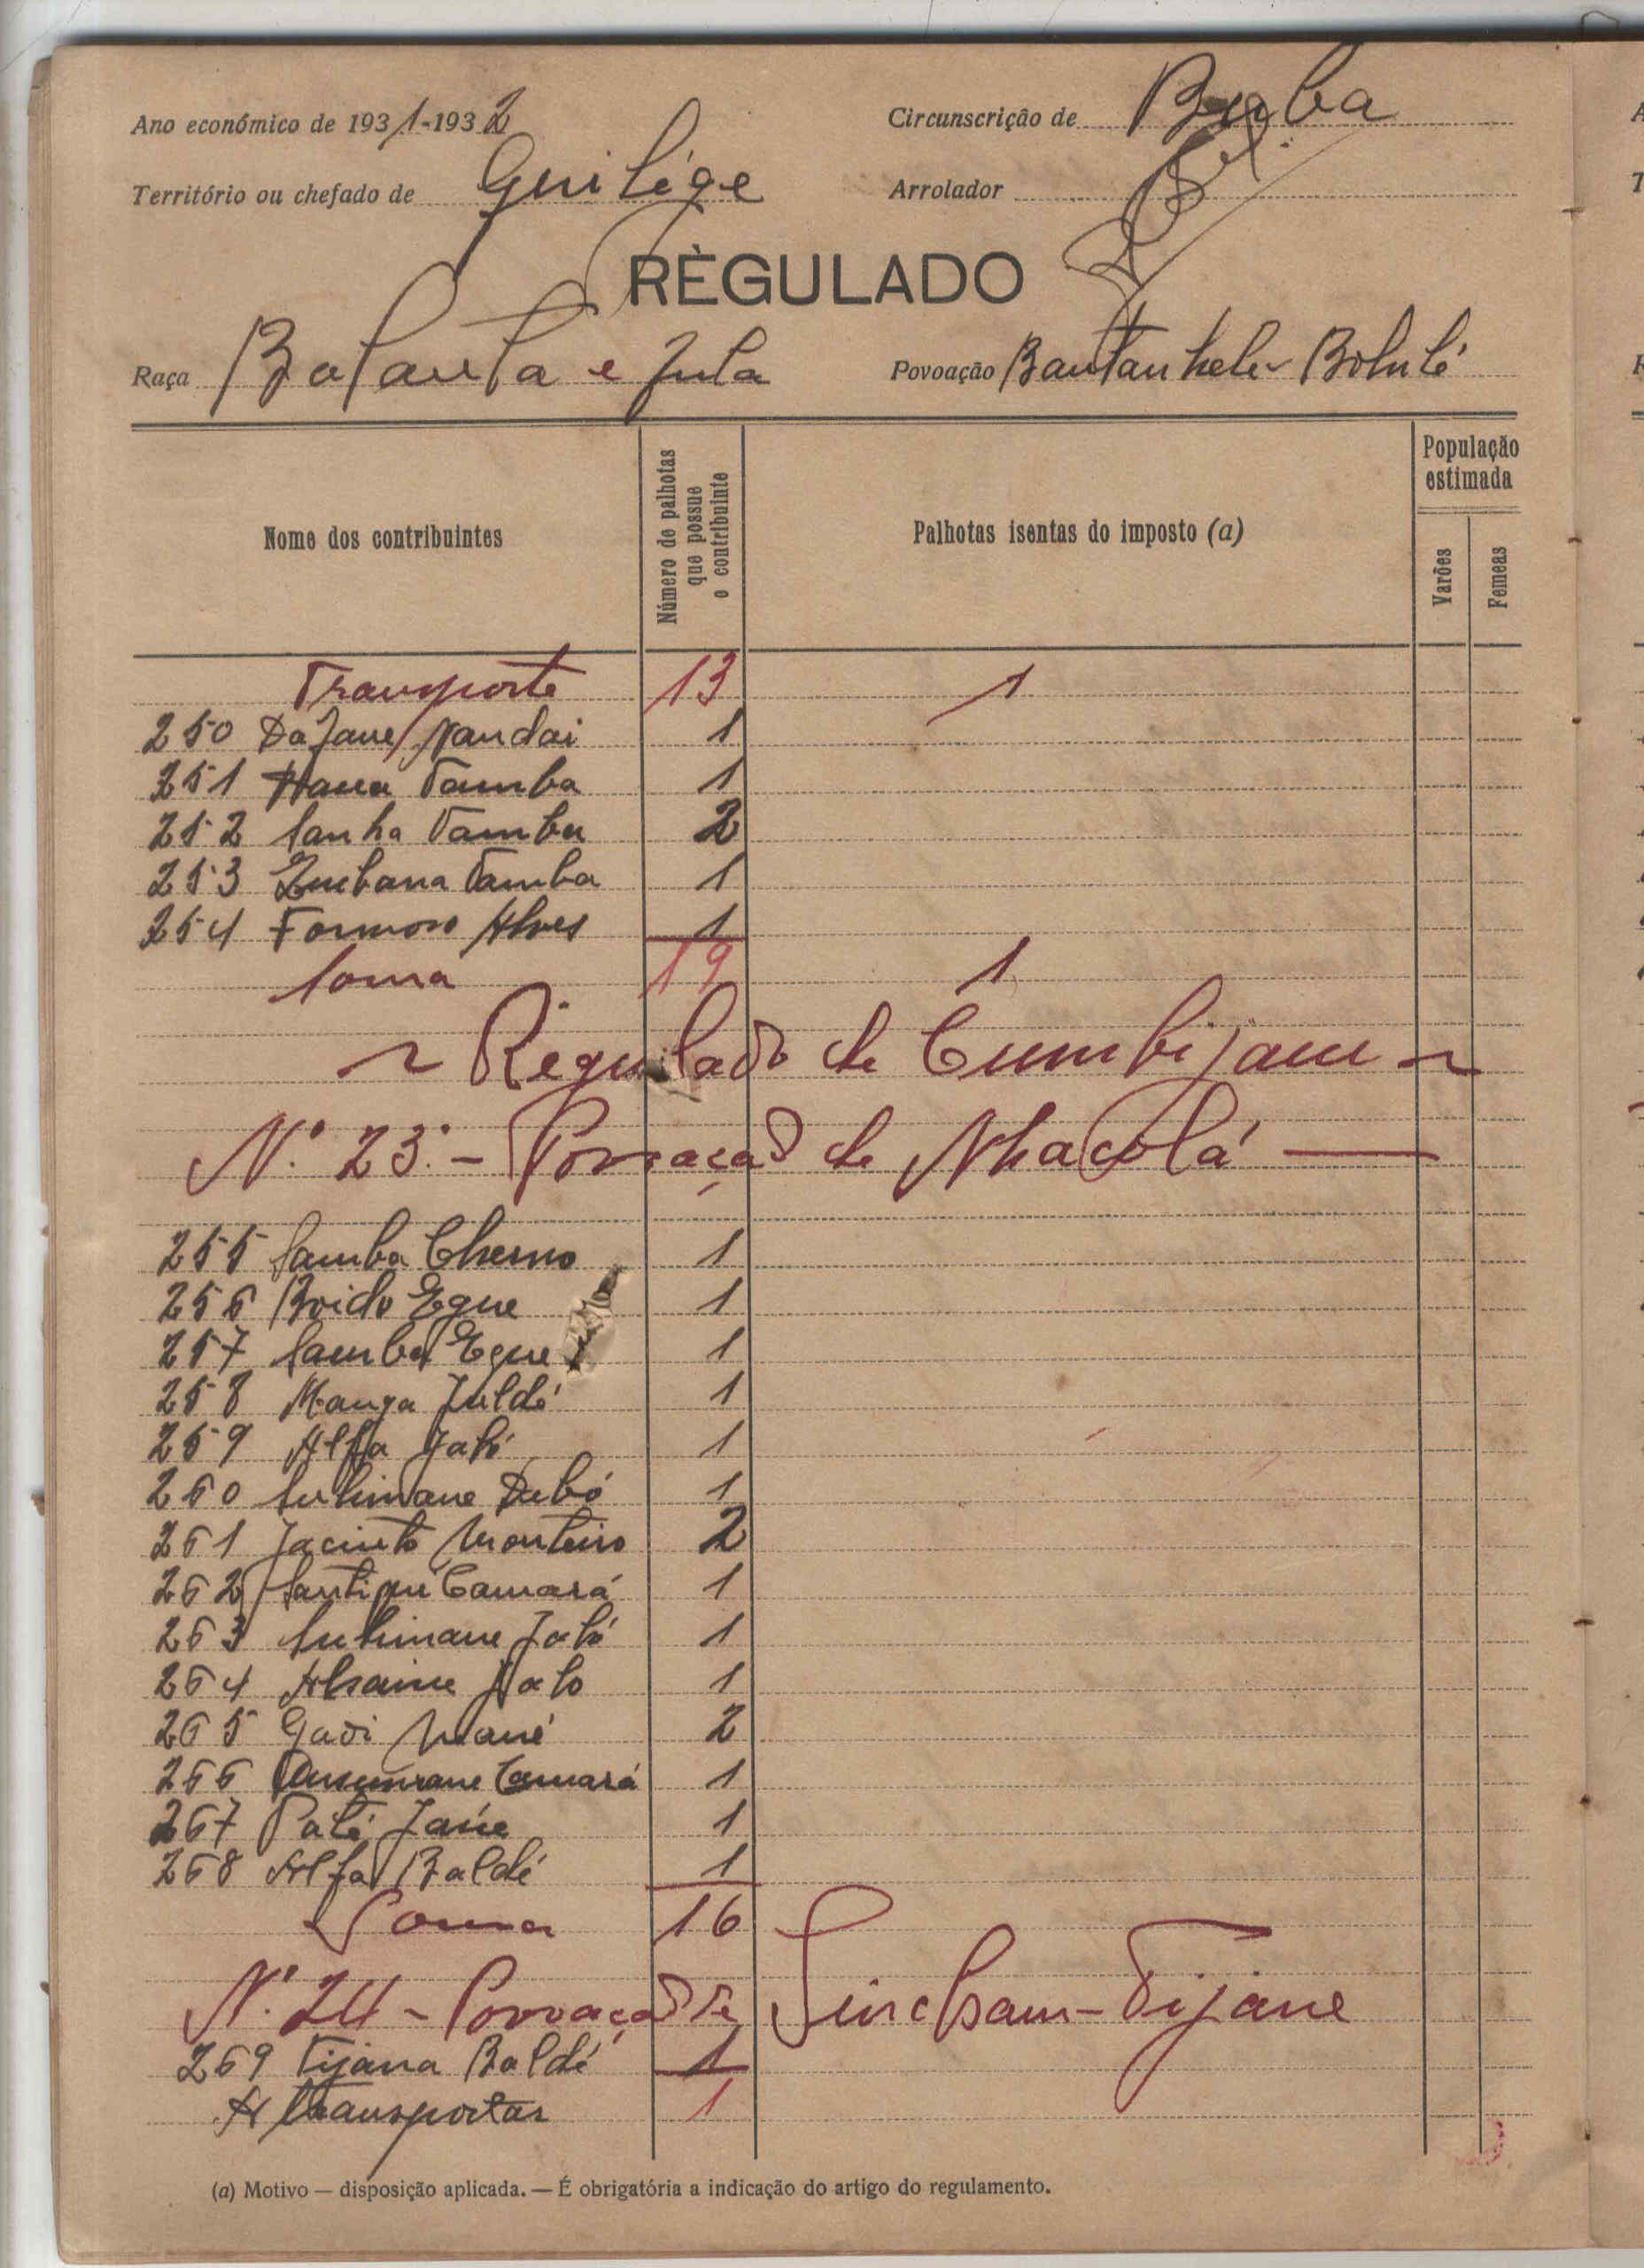 Ano económico de 1931-1932 Circunscrição de Buba
Território ou chefado de Guilége Arrolador
REGULADO
Raça Balanta e Fula Povoação Bantanhele-Bolulé
Nome dos contribuintes
Número de palhotas que possue o contribuinte
Palhotas isentas do imposto (a)
População estimada
Varões
Femeas
Transporte 13 1
250 Dafane Nandai 1
251 Tamba 1
252 Sanha Tamba 2
253 Tamba 1
254 Formoso Alves 1
Soma 19 1
~ Regulado de Cumbijam ~
N.º 23.º - Povoação de Nhacolá —
255 Samba Cherno 1
256 Boido Egue 1
257 Samba Egue 1
258 Manga Juldé 1
259 Alfa Jaló 1
260 Sulimane Dabó 1
261 Jacinto Monteiro 2
262 Camará 1
263 Sulimane Jaló 1
264 Alsaine Jalo 1
265 Gadi Mané 2
266 Camará 1
267 Paté Jane 1
268 Alfa Baldé 1
Soma 16
N.º 24 - Povoação de Sincham-Tijane
269 Tijana Baldé 1
A transportar 1
(a) Motivo — disposição aplicada. — É obrigatória a indicação do artigo do regulamento.